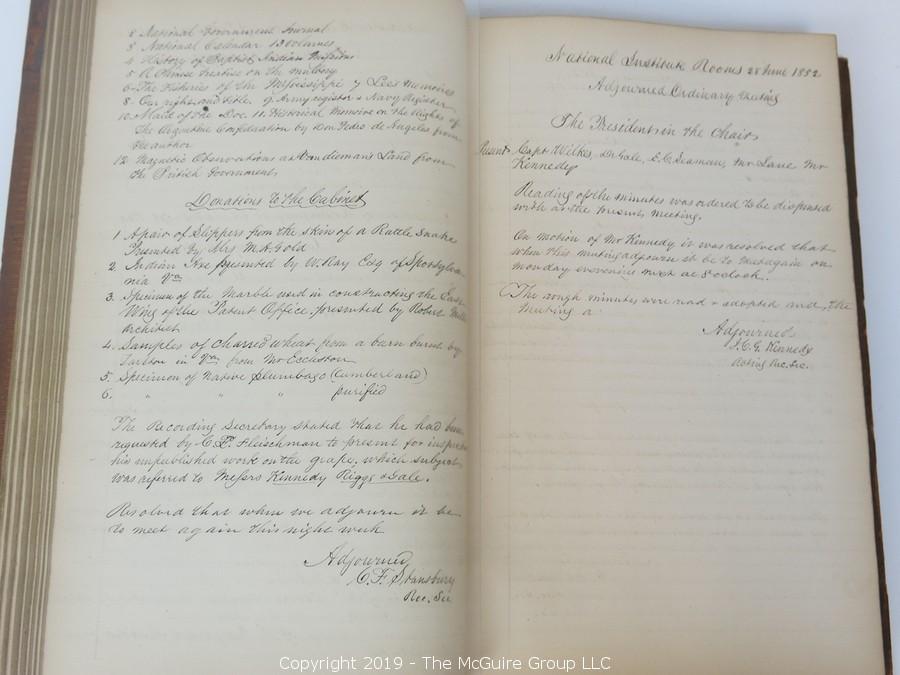 2 National Government Journal
3 National Calendar 13 volumes
4 History of Baptist Indian Missions
5 A Treatise on the military
6 The Fisheries of the Mississippi 7 Lee's Memoires
8 Our rights and title. 9 Army register & Navy Register
10 Made of the Doc. 11. Historical Memoire on the Rights of
The Argentine Confederation by Don Pedro de Angeles from
the author
12 Magnetic Observations at Vandieman's Land from
the British Government
Donations to the Cabinet
1 A pair of Slippers from the skin of a Rattle Snake
Presented by Mrs M. A. Gold
2. Indian presented by W. Ray Esq of Spotsylva
nia Va
3. Specimen of the Marble used in constructing the East
Wing of the Patent Office, presented by Robert Mills
Architect
4. Samples of Charred wheat from a barn burnt by
Tarleton in Va from Mr Eccleston
5. Specimen of Native Plumbago (Cumberland)
6. " " " purified
The Recording Secretary stated that he had been
requested by C. L. Fleischman to present for inspec
his unpublished work on the grape, which subject
was referred to Messrs Kennedy Riggs & Gale.
Resolved that when we adjourn it be
to meet again this night week
Adjourned
C. F. Stansbury
Rec. Sec
National Institute Rooms 28 June 1852
Adjourned Ordinary Meeting
The President in the Chair
Present Capt Wilkes, Dr Gale, E. C. Seaman, Mr Lane Mr
Kennedy
Reading of the minutes was ordered to be dispensed
with at the present meeting.
On motion of Mr Kennedy it was resolved that
when this meeting adjourn it be to meet again on
Monday evening next at 8 o'clock.
The rough minutes were read & adopted and, the
meeting a
Adjourned
J. C. G. Kennedy
Acting Rec. Sec.
Copyright 2019 - The McGuire Group LLC